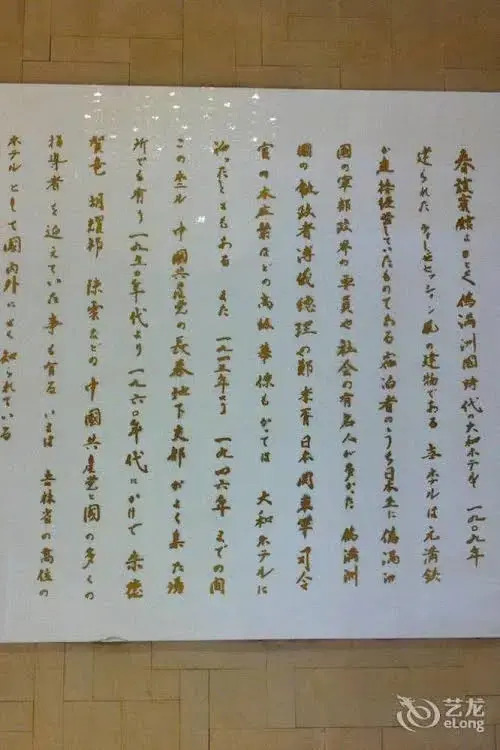 春誼賓館はもとく偽満洲国時代の大和ホテル 一九〇九年
建られた ヌーボセッション風の建物である 春ホテルは元満鉄
が直接経営していたものである 宿泊者のうち日本並に偽満洲
国の軍部政界の要員や社会の有名人が多かた 偽満洲
国の執政者溥儀 総理の鄭孝胥 日本関東軍司令
官の本庄繁などの高級華僚もかては 大和ホテルに
泊ったこともある また 一九四五年より 一九四六年までの間
このホテル 中国共産党の長春地下支部がよく集た場
所でも有り 一九五〇年代より一九六〇年代にかけて 朱徳
賀竜 胡耀邦 陳雲などの中国共産党と国の多くの
指導者を迎えていた事も有る いまは 吉林省の高位の
ホテルとして国内外によく知られている
艺龙
eLong